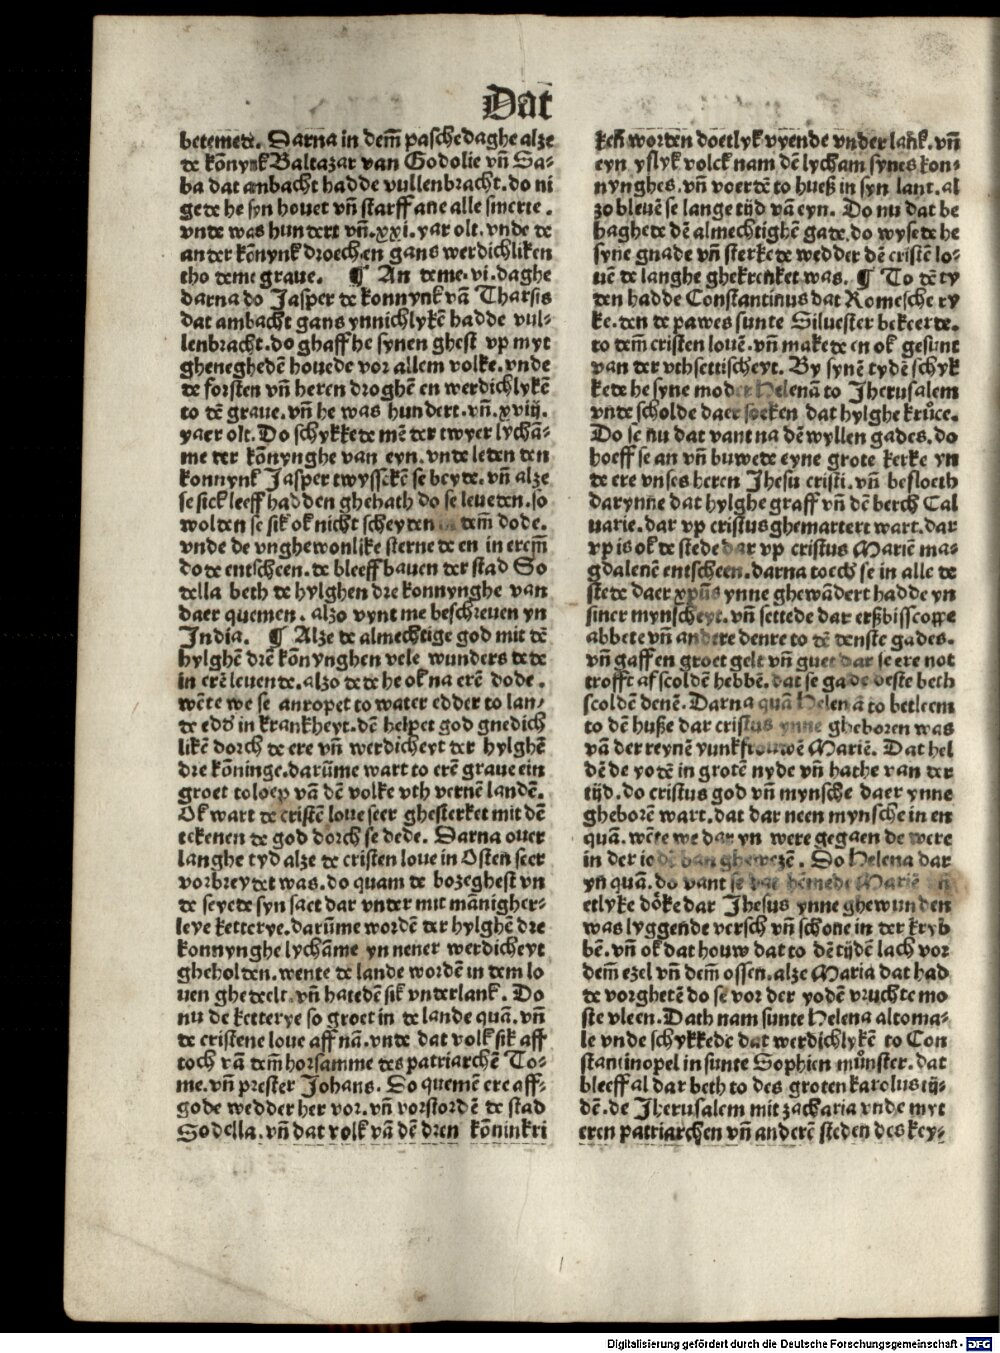 Dat
betemede. Darna in dem̄ paschedaghe alze
de kōnynk Baltazar van Godolie vn̄ Sa-
ba dat ambacht hadde vullenbracht. do ni
gede he syn houet vn̄ starff ane alle smerte.
vnde was hundert vn̄.xxi. yar olt. vnde de
ander kōnynk droechen gans werdichliken
tho deme graue. ¶ An deme.vi.daghe
darna do Jasper de konnynk vā Tharsis
dat ambacht gans ynnichlykē hadde vul-
lenbracht.do ghaff he synen ghest vp myt
gheneghedē houede vor allem volke.vnde
de forsten vn̄ heren droghē en werdichlykē
to dē graue.vn̄ he was hundert.vn̄.xviij.
yaer olt. Do schykkede mē der twyer lychā-
me der kōnynghe van eyn.vnde leden den
konnynk Jasper twyssckē se beyde.vn̄ alze
se sick leeff hadden ghehath do se leueden.so
wolden se sik ok nicht scheyden in dem̄ dode.
vnde de vnghewonlike sterne de en in erem̄
dode entscheen.de bleeff bauen der stad So
della beth de hylghen dre konnynghe van
daer quemen. alzo vynt me beschreuen yn
India. ¶ Alze de almechtige god mit dē
hylghē drē kōnynghen vele wunders dede
in erē leuende.alzo dede he ok na erē dode.
wēte we se anropet to water edder to lan-
de edd' in krankheyt.dē helpet god gnedich
likē dorch de ere vn̄ werdicheyt der hylghē
dre kōninge.darūme wart to erē graue ein
groet toloep vā dē volke vth vernē landē.
Ok wart de cristē loue seer ghesterket mit dē
teckenen de god dorch se dede. Darna ouer
langhe tyd alze de cristen loue in Osten seer
vorbreydet was.do quam de bozeghest vn
de seyede syn saet dar vnder mit mānigher-
leye ketterye.darūme wordē der hylghē dre
konnynghe lychāme yn nener werdicheyt
gheholden.wente de lande wordē in dem lo
uen ghedeelt.vn̄ hatedē sik vnderlank. Do
nu de ketterye so groet in de lande quā.vn̄
de cristene loue aff nā.vnde dat volk sik aff
toch vā dem̄ horsamme des patriarchē To-
me.vn̄ prester Johans. So quemē ere aff-
gode wedder her vor.vn̄ vorstordē de stad
Sodella.vn̄ dat volk vā dē dren kōninkri
ken̄ worden doetlyk vyende vnder lank̄.vn̄
eyn yslyk volck nam dē lycham synes kon-
nynghes.vn̄ voerdē to hueß in syn lant.al
zo bleuē se lange tijd vā eyn. Do nu dat be
haghede dē almechtighē gade.do wysede he
syne gnade vn̄ sterkede wedder dē cristē lo-
uē de langhe ghekrenket was. ¶ To dē ty
den hadde Constantinus dat Romesche ry
ke.den de pawes sunte Siluester bekeerde.
to dem̄ cristen louē.vn̄ makede en ok gesunt
van der vthsettischeyt. By synē tydē schyk
kede he syne moder Helenā to Jherusalem
vnde scholde daer soeken dat hylghe krůce.
Do se nu dat vant na dē wyllen gades.do
hoeff se an vn̄ buwede eyne grote kerke yn
de ere vnses heren Jhesu cristi.vn̄ besloeth
darynne dat hylghe graff vn̄ dē berch Cal
uarie.dar vp cristus ghemartert wart.dar
vp is ok de stede dar vp cristus Mariē ma-
gdalenē entscheen.darna toech se in alle de
stede daer xpūs ynne ghewādert hadde yn
siner mynscheyt.vn̄ settede dar erßbisscoppe
abbete vn̄ andere denre to dē denste gades.
vn̄ gaff en groet gelt vn̄ guet dar se ere not
trofft af scoldē hebbē.dat se gade deste beth
scoldē denē. Darna quā Helenā to betleem
to dē huße dar cristus ynne gheboren was
vā der reynē yunkfrouwē Mariē. Dat hel
dē de yodē in grotē nyde vn̄ hathe van der
tijd.do cristus god vn̄ mynsche daer ynne
gheborē wart.dat dar neen mynsche in en
quā.wēte we dar yn were gegaen de were
in der iodē ban ghewezē. Do Helena dar
yn̄ quā.do vant se dat hēmede Mariē vn̄
etlyke dōke dar Jhesus ynne ghewunden
was lyggende versch vn̄ schone in der kryb
bē.vn̄ ok dat houw dat to dē tijdē lach vor
dem̄ ezel vn̄ dem̄ ossen.alze Maria dat had
de vorghetē do se vor der yodē vruchte mo
ste vleen.Dath nam sunte Helena altoma-
le vnde schykkede dat werdichlykē to Con
stantinopel in sunte Sophien můnster.dat
bleeff al dar beth to des groten karolus tij-
dē.de Jherusalem mit zacharia vnde myt
eren patriarchen vn̄ anderē steden des key-
Digitalisierung gefördert durch die Deutsche Forschungsgemeinschaft - DFG